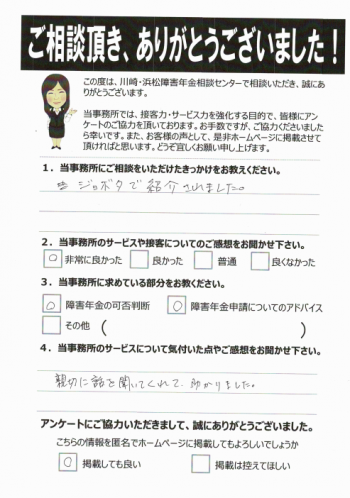 ご相談頂き、ありがとうございました！
この度は、川崎・浜松障害年金相談センターで相談いただき、誠にあ
りがとうございます。
当事務所では、接客力・サービス力を強化する目的で、皆様にアン
ケートのご協力を頂いております。お手数ですが、ご協力くださいました
ら幸いです。また、お客様の声として、是非ホームページに掲載させて
頂ければと思います。どうぞ宜しくお願い申し上げます。
１．当事務所にご相談をいただけたきっかけをお教えください。
ジョブタで紹介されました。
２．当事務所のサービスや接客についてのご感想をお聞かせ下さい。
○ 非常に良かった 良かった 普通 良くなかった
３．当事務所に求めている部分をお教ください。
○ 障害年金の可否判断 ○ 障害年金申請についてのアドバイス
その他 ( )
４．当事務所のサービスについて気付いた点やご感想をお聞かせ下さい。
親切に話を聞いてくれて、助かりました。
アンケートにご協力いただきまして、誠にありがとうございました。
こちらの情報を匿名でホームページに掲載してもよろしいでしょうか
○ 掲載しても良い 掲載は控えてほしい